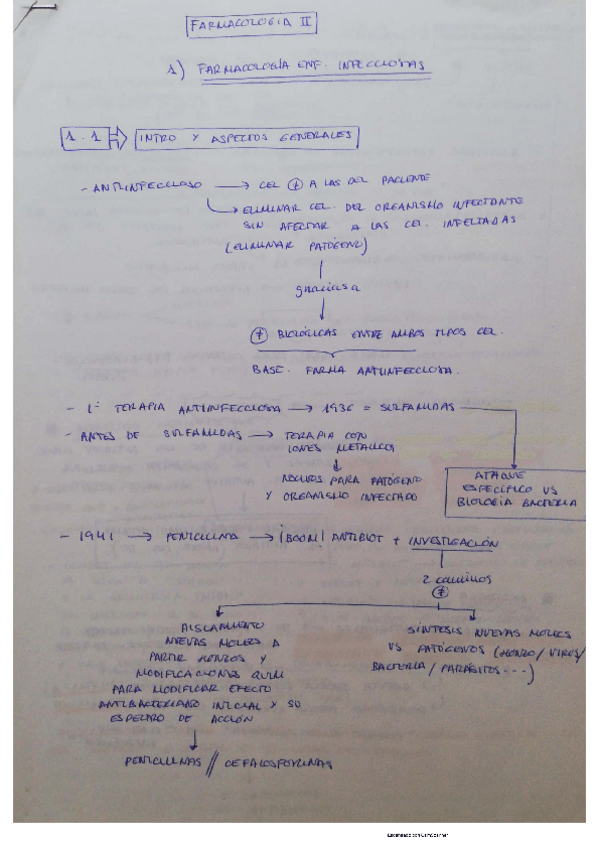 FARMACOLOGIA II
1) FARMACOLOGÍA ENF. INFECCIOSAS
1.1 INTRO Y ASPECTOS GENERALES
- ANTIINFECCIOSO → CEL ≠ A LAS DEL PACIENTE
→ ELIMINAR CEL. DEL ORGANISMO INFECTANTE
SIN AFECTAR A LAS CEL. INFECTADAS
(ELIMINAR PATÓGENO)
gracias a
≠ BIOLÓGICAS ENTRE AMBOS TIPOS CEL.
BASE. FARMA ANTIINFECCIOSA.
- 1ª TERAPIA ANTIINFECCIOSA → 1936 = SULFAMIDAS
- ANTES DE SULFAMIDAS → TERAPIA CON
IONES METÁLICOS
↓
NOCIVOS PARA PATÓGENO
Y ORGANISMO INFECTADO
ATAQUE
ESPECÍFICO VS
BIOLOGÍA BACTERIA
- 1941 → PENICILINA → ¡BOOM! ANTIBIOT + INVESTIGACIÓN
2 caminos
≠
AISLAMIENTO
NUEVAS MOLES A
PARTIR HONGOS Y
MODIFICACIONES QUIM
PARA MODIFICAR EFECTO
ANTIBACTERIANO INICIAL Y SU
ESPECTRO DE ACCIÓN
↓
PENICILINAS // CEFALOSPORINAS
SÍNTESIS NUEVAS MOLES
VS PATÓGENOS (HONGO/VIRUS/
BACTERIA/PARÁSITOS---)
Escaneado con CamScanner